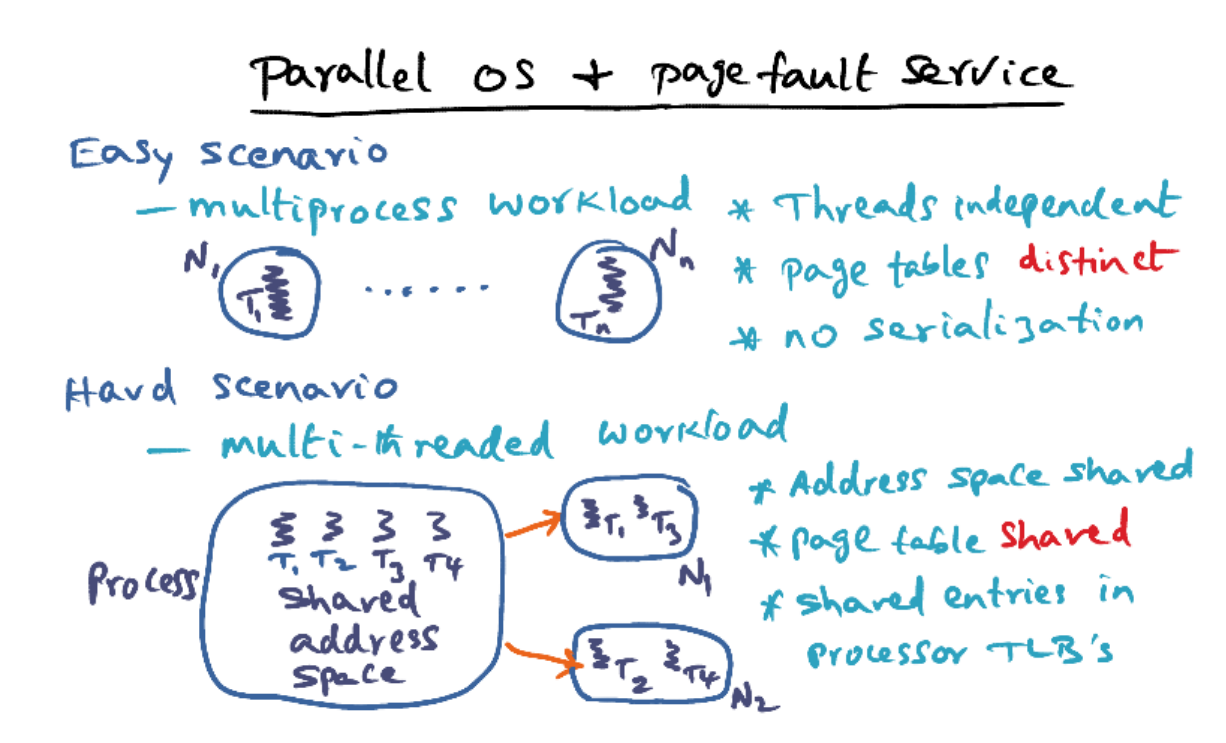 Parallel OS + page fault service
Easy scenario
— multiprocess workload
* Threads independent
* page tables distinct
* no serialization
N1
T1
.......
Nn
Tn
Hard scenario
— multi-threaded workload
Process
T1 T2 T3 T4
shared
address
space
T1 T3
N1
T2 T4
N2
* Address space shared
* page table shared
* shared entries in
processor TLB's